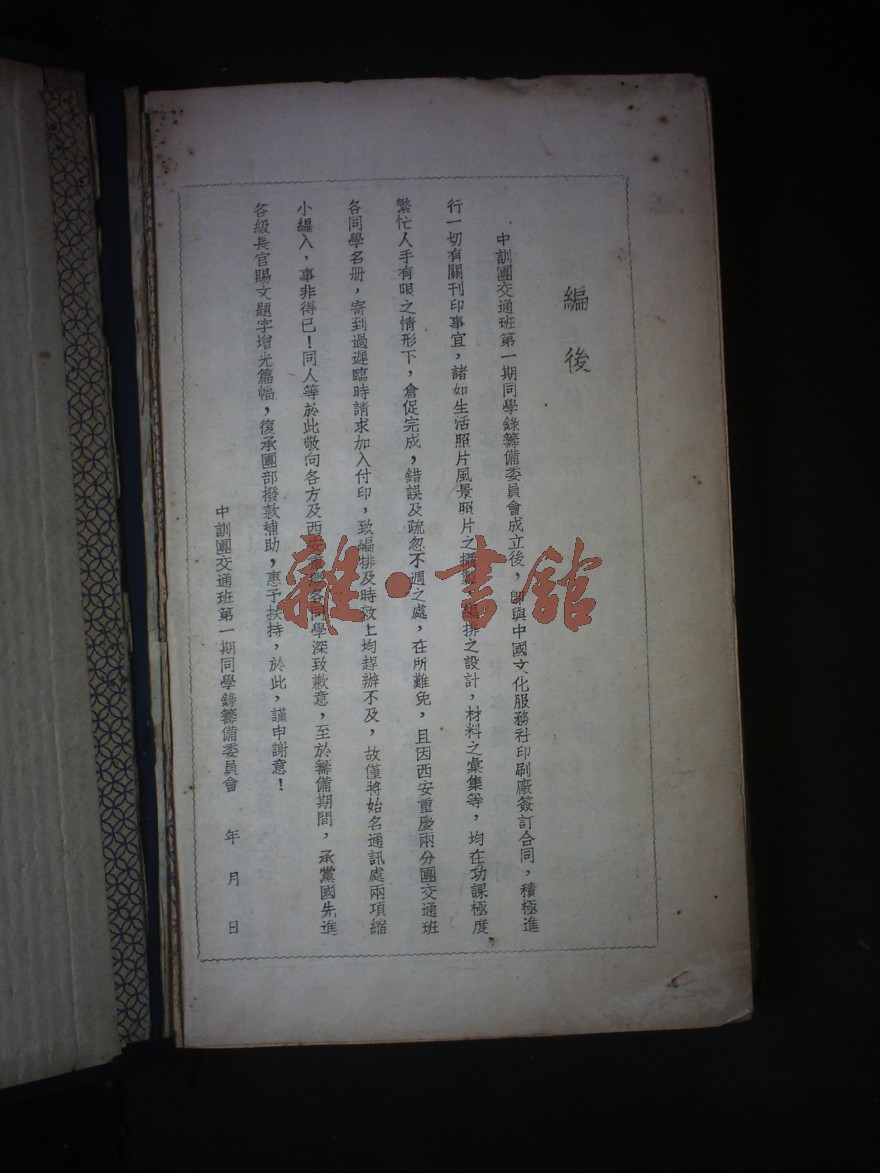 編後
中訓團交通班第一期同學錄籌備委員會成立後，即與中國文化服務社印刷廠簽訂合同，積極進
行一切有關刊印事宜，諸如生活照片風景照片之攝製，編排之設計，材料之彙集等，均在功課極度
繁忙人手有限之情形下，倉促完成，錯誤及疏忽不週之處，在所難免，且因西安重慶兩分團交通班
各同學名册，寄到過遲臨時請求加入付印，致編排及時效上均趕辦不及，故僅將始名通訊處兩項縮
小編入，事非得已！同人等於此敬向各方及西安重慶各同學深致歉意，至於籌備期間，承黨國先進
各級長官賜文題字增光篇幅，復承團部撥款補助，惠予扶持，於此，謹申謝意！
中訓團交通班第一期同學錄籌備委員會 年 月 日
雜·書館